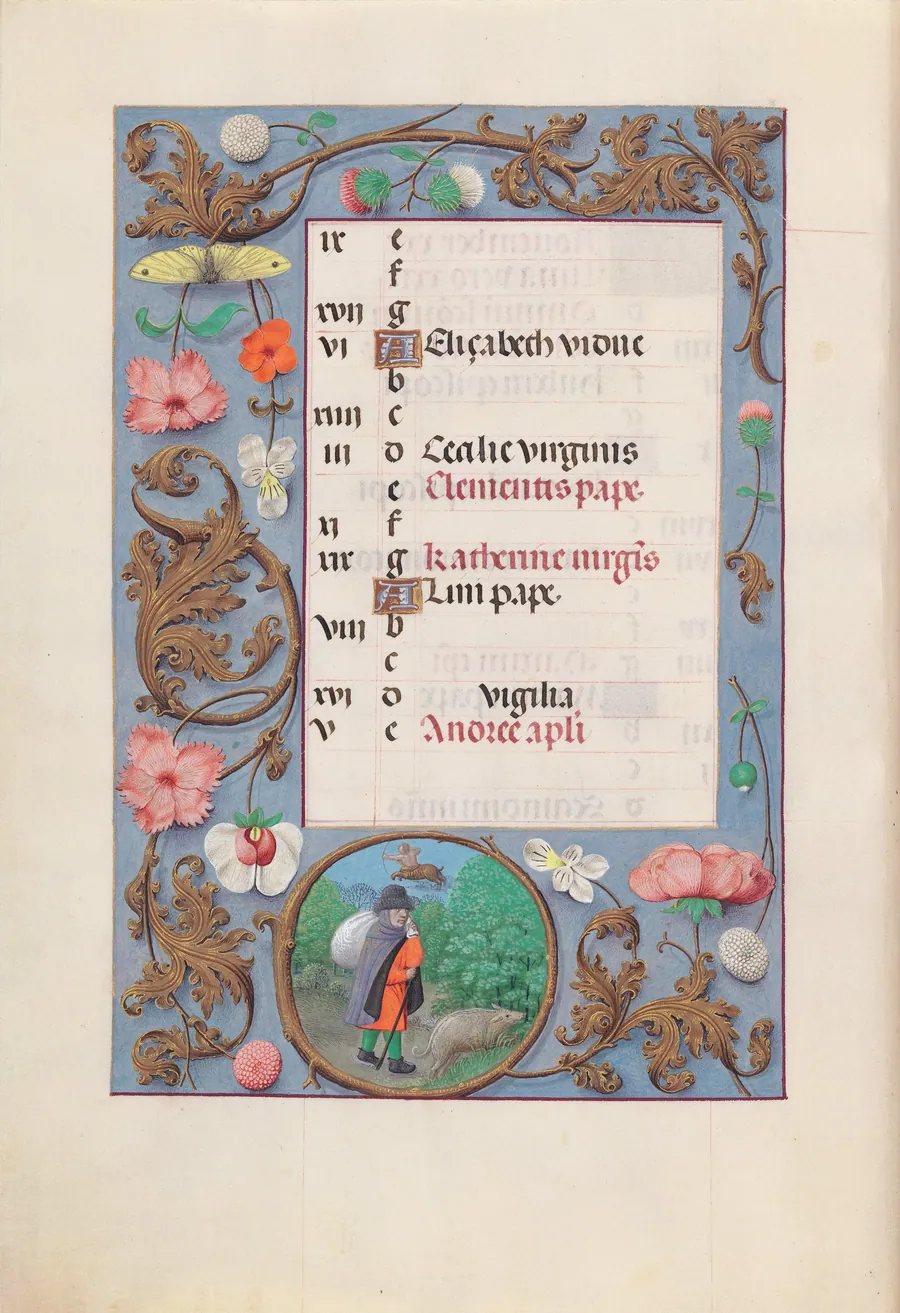 ix e
f
xvii g
vi A Eliçabeth vidue
b
xiiii c
iii d Cecilie virginis
e Clementis pape
xi f
xix g Katherine virgīs
A Lini pape
viii b
c
xvi d vigilia
v e Andree apli